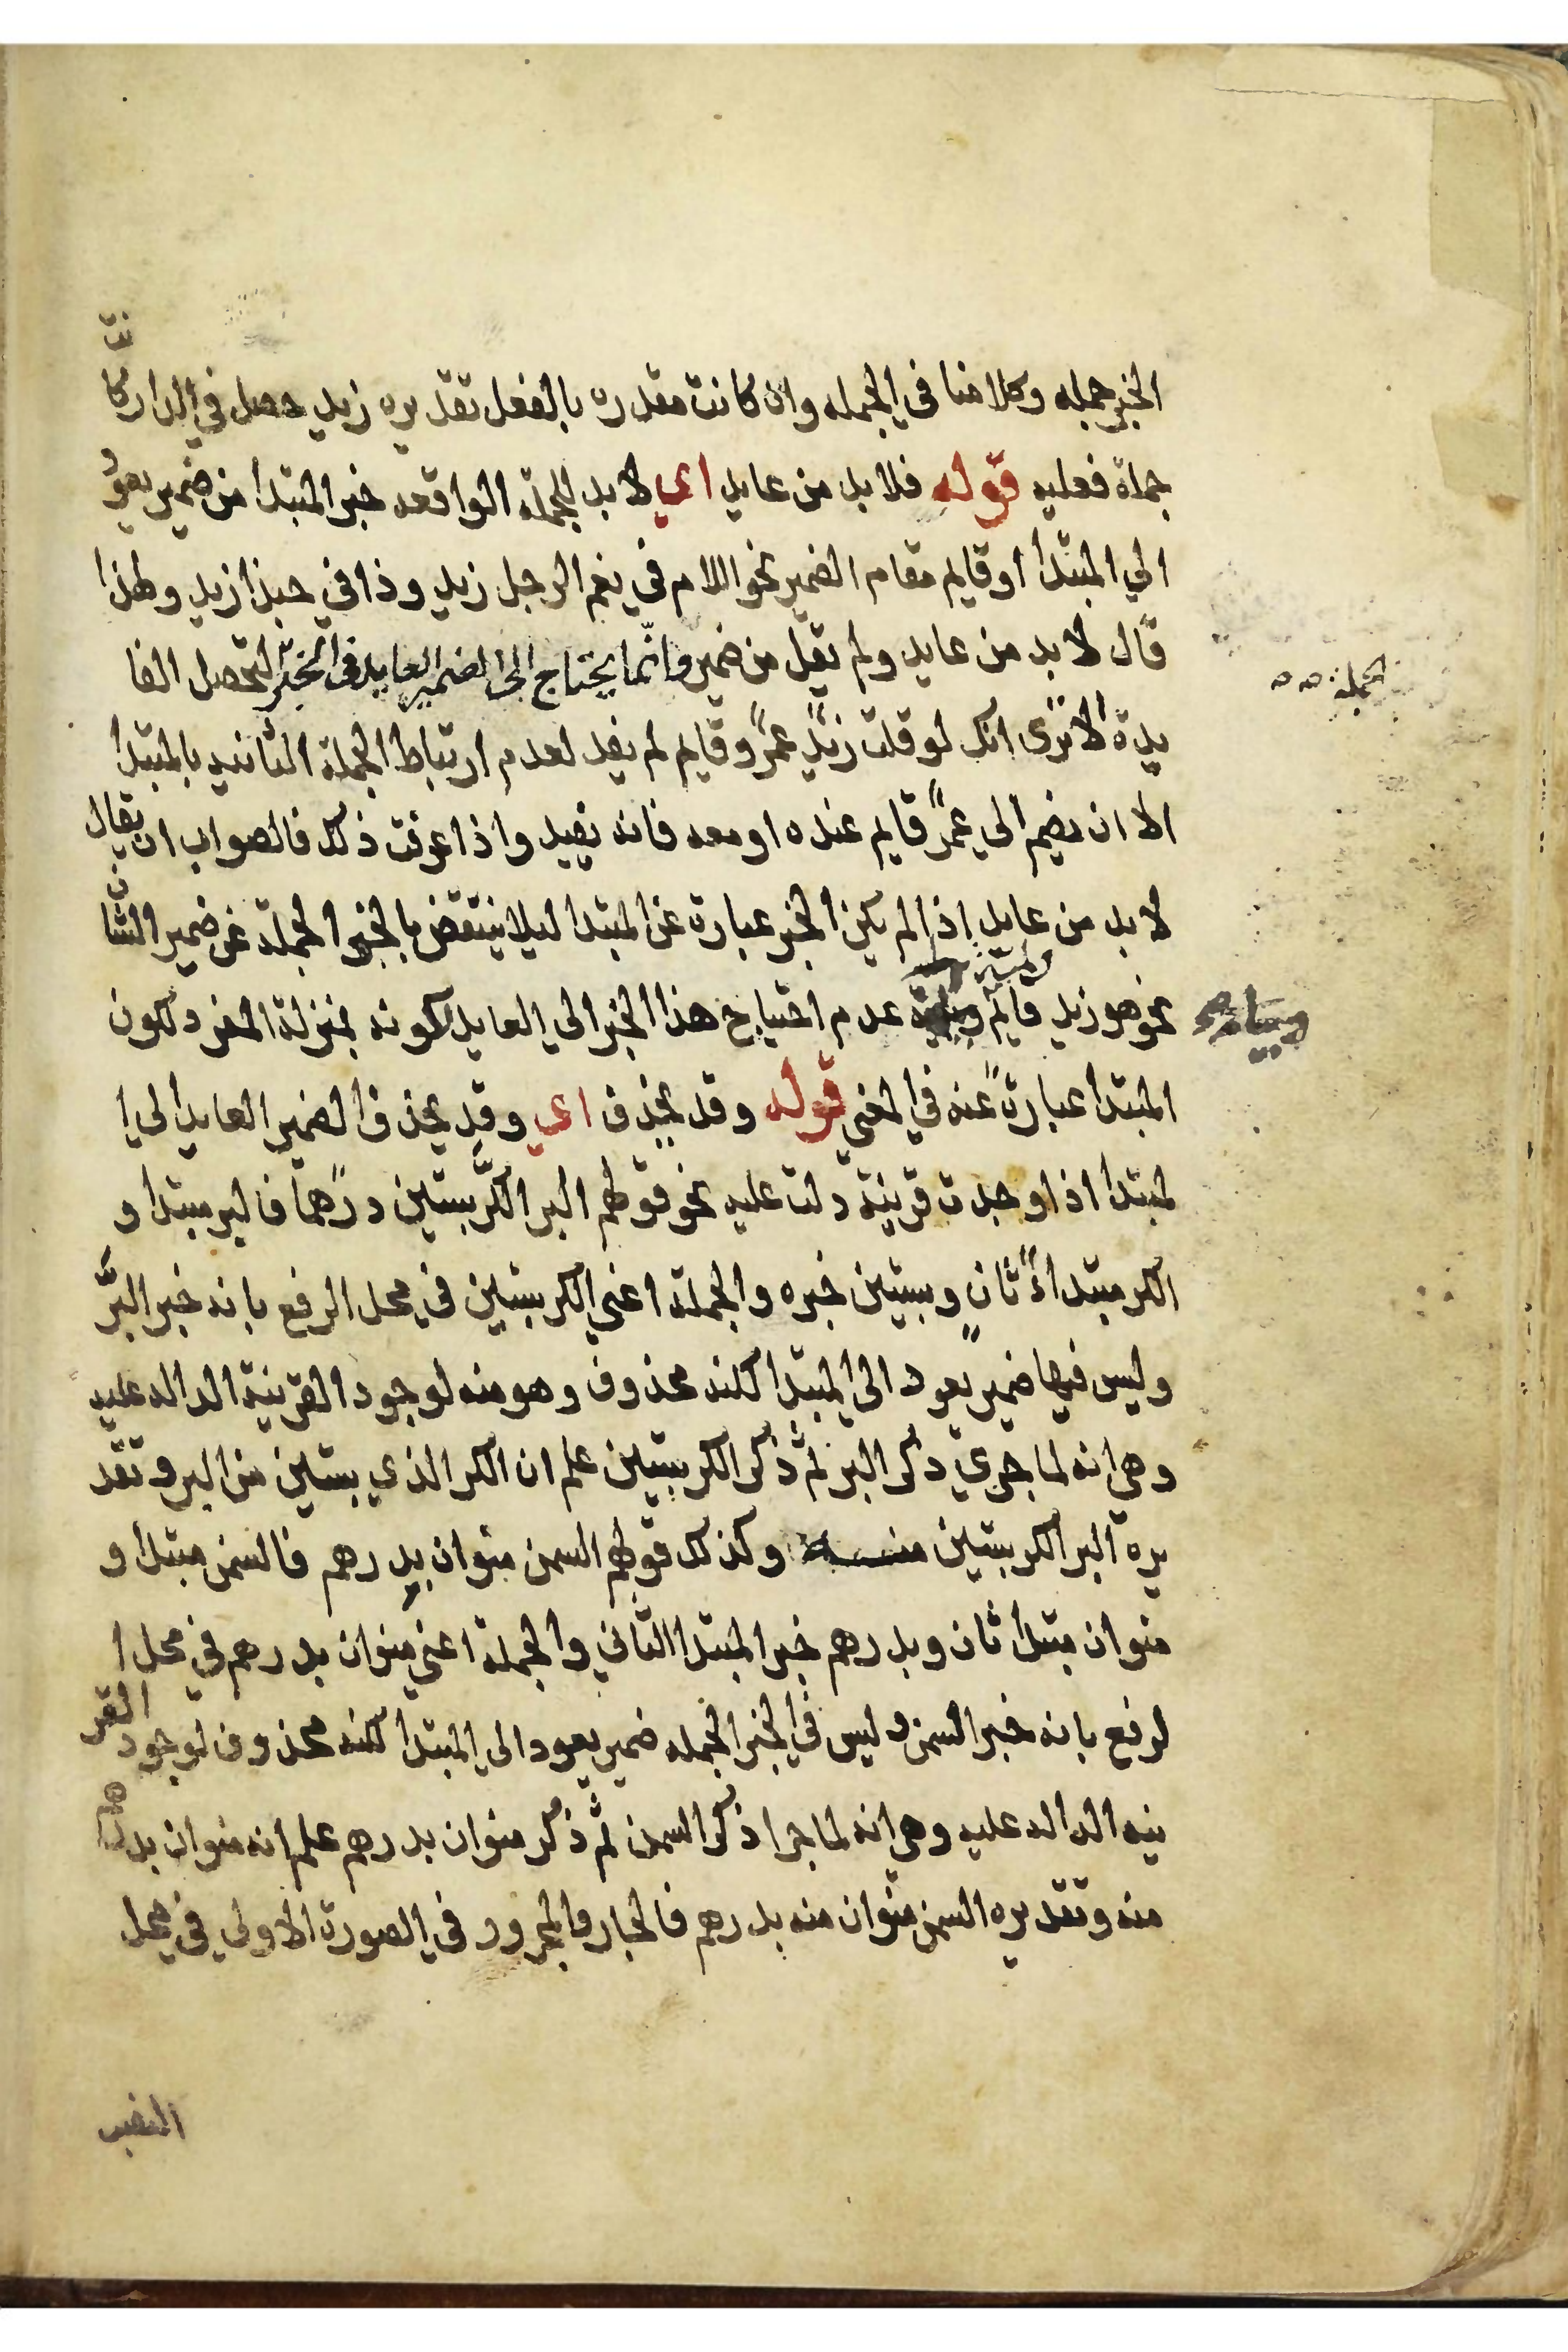 الخبر جمله وكلامنا في الجمله وان كانت مقدره بالفعل تقديره زيد حصل في الدار كانت
جملة فعليه قوله فلا بد من عايد اي لا بد للجملة الواقعه خبر المبتدا من ضمير يعود
الي المبتدأ او قايم مقام الضمير نحو اللام في نعم الرجل زيد وذا في حبذا زيد ولهذا
قال لا بد من عايد ولم يقل من ضمير وانما يحتاج الى الضمير العايد في الخبر لتحصل الفا
الجملة
يدة الا ترى انك لو قلت زيدٌ عمرٌو قايم لم يفد لعدم ارتباط الجملة الثانيه بالمبتدا
الا ان تضم الي عمرٌو قايم عنده او معه فانه يفيد واذا عرفت ذلك فالصواب ان يقال
لا بد من عايد اذا لم يكن الخبر عبارة عن المبتدا ليلا ينتقض بالخبر الجملة عن ضمير الشان
نحو هو زيد قايم عدم احتياج هذا الخبر الي العايد لكونه بمنزلة المفرد لكون
المبتدأ عبارةً عنه في المعني قوله وقد يحذف اي وقد يحذف الضمير العايد الي ا
لمبتدا اذا وجدت قرينة دلت عليه نحو قولهم البر الكرُّ بستين درهماً فالبر مبتدا و
الكر مبتداءٌ ثانٍ وبستين خبره والجملة اعني الكر بستين في محل الرفع بانه خبر البرُّ
وليس فيها ضمير يعود الي المبتدا لكنه محذوف وهو منه لوجود القرينة الداله عليه
وهي انه لما جري ذكر البر ثم ذكر الكر بستين علم ان الكر الذي بستين من البر وتقد
يره البر الكر بستين منه وكذلك قولهم السمن منوان بدرهم فالسمن مبتدأ و
منوان مبتدأ ثان وبدرهم خبر المبتدا الثاني والجملة اعني منوان بدرهم في محل ا
لرفع بانه خبر السمن وليس في الخبر الجمله ضمير يعود الي المبتدأ لكنه محذوف لوجود القر
ينه الداله عليه وهي انه لما جرا ذكر السمن ثم ذكر منوان بدرهم علم انه منوان بدرهم
منه وتقديره السمن منوان منه بدرهم فالجار والمجرور في الصورة الاولي في محل